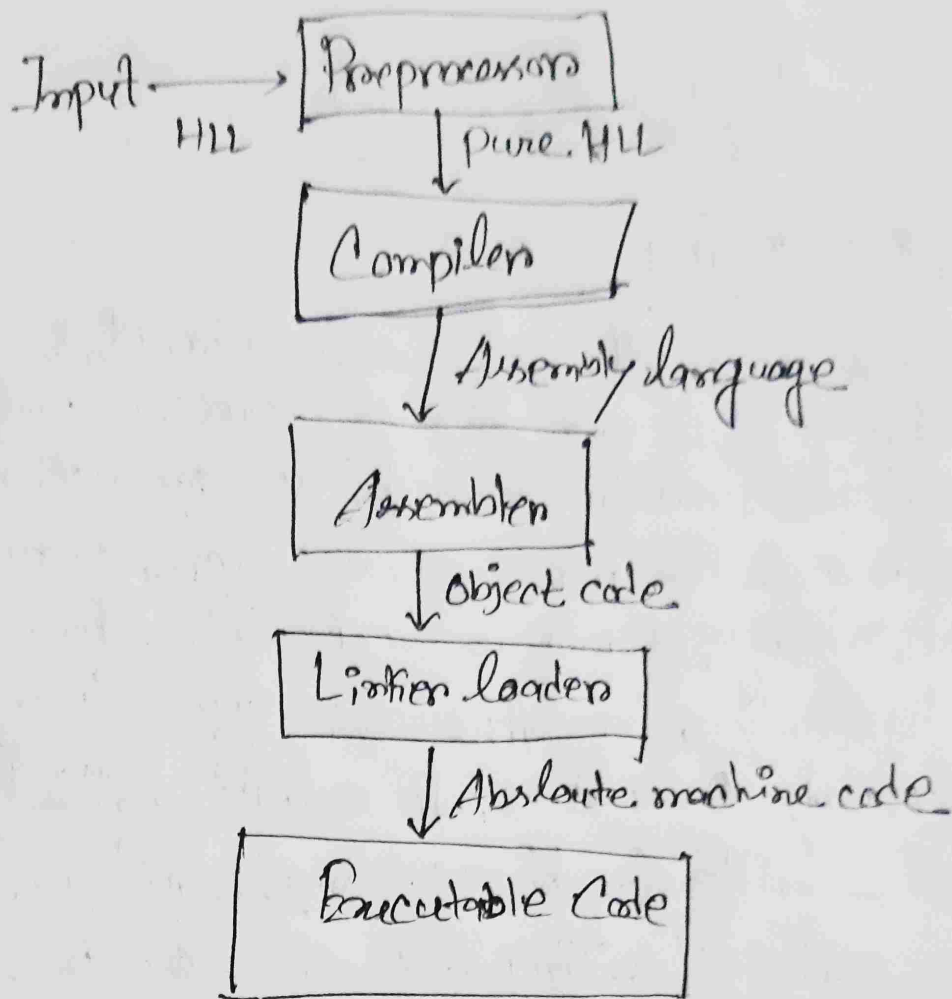 Input
HLL
Preprocessor
pure HLL
Compiler
Assembly language
Assembler
Object code
Linker loader
Absloute machine code
Executable Code